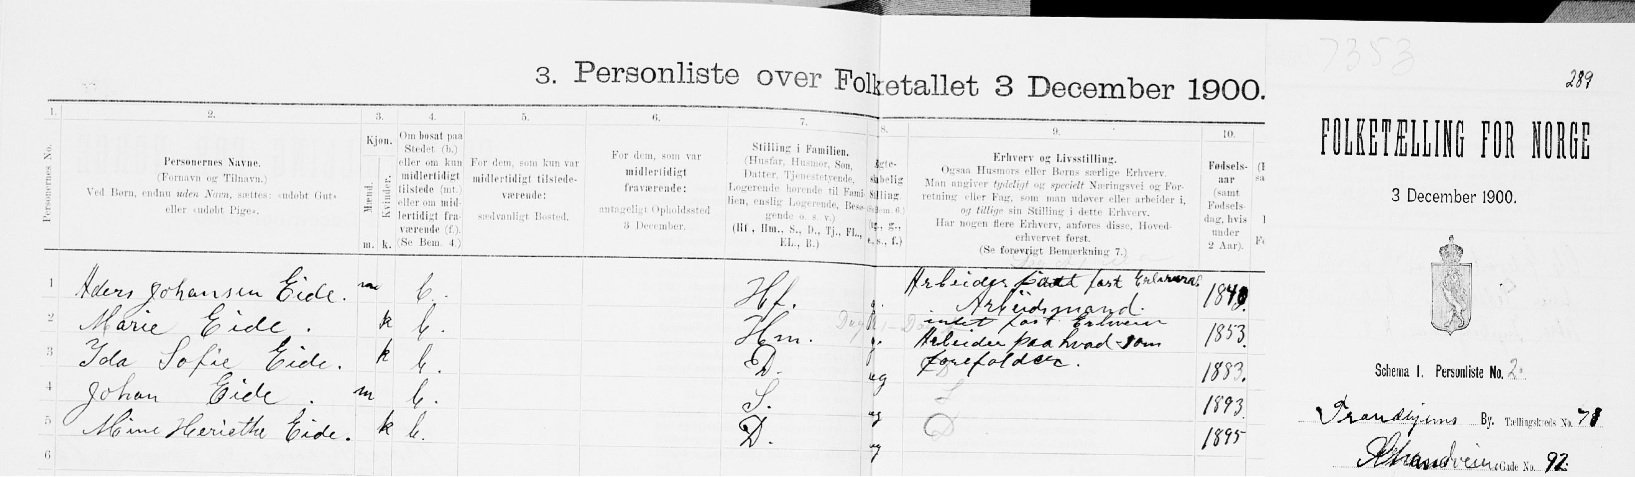 3. Personliste over Folketallet 3 December 1900.
1.
2.
3.
4.
5.
6.
7.
8.
9.
10.
Personernes No.
Personernes Navne.
(Fornavn og Tilnavn.)
Ved Børn, endnu uden Navn, sættes: «udøbt Gut»
eller «udøbt Pige».
Kjøn.
Mænd.
Kvinder.
m. k.
Om bosat paa
Stedet (b.)
eller om kun
midlertidigt
tilstede (mt.)
eller om mid-
lertidigt fra-
værende (f.).
(Se Bem. 4.)
For dem, som kun var
midlertidigt tilstede-
værende:
sædvanligt Bosted.
For dem, som var
midlertidigt
fraværende:
antageligt Opholdssted
3 December.
Stilling i Familien.
(Husfar, Husmor, Søn,
Datter, Tjenestetyende,
Logerende hørende til Fami-
lien, enslig Logerende, Besø-
gende o. s. v.)
(Hf., Hm., S., D., Tj., FL.,
EL., B.)
Erhverv og Livsstilling.
Ogsaa Husmors eller Børns særlige Erhverv.
Man angiver tydeligt og specielt Næringsvei og For-
retning eller Fag, som man udøver eller arbeider i,
og tillige sin Stilling i dette Erhverv.
Har nogen flere Erhverv, anføres disse, Hoved-
erhvervet først.
(Se forøvrigt Bemærkning 7.)
Fødsels-
aar
(samt
Fødsels-
dag, hvis
under
2 Aar).
1 Aders Johansen Eide. m b. Hf. g. Arbeider fast 1840
Arbeidsmand.
2 Marie Eide. k b. Hm. g. intet fast 1853.
Arbeider paa hvad som
3 Ida Sofie Eide. k b. D. ug forefalder. 1883.
4 Johan Eide. m b. S. ug 1893
5 k b. D. ug 1895
6
7353
289
FOLKETÆLLING FOR NORGE
3 December 1900.
Schema 1. Personliste No. 2.
Trondhjems By. Tællingskreds No. 78
Strandveien Gade No. 92.